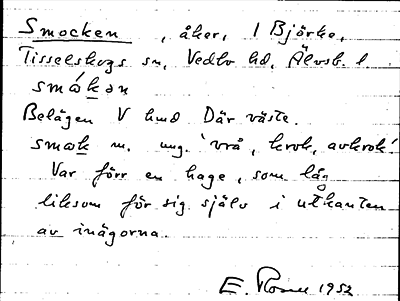 Smocken, åker, 1 Björke,
Tisselskogs sn, Vedbo hd, Älvsb. l
smákən
Belägen V hmd Där väste.
smak m. ung. 'vrå, krok, avkrok'
Var förr en hage, som låg
liksom för sig själv i utkanten
av inägorna.
E. 1952